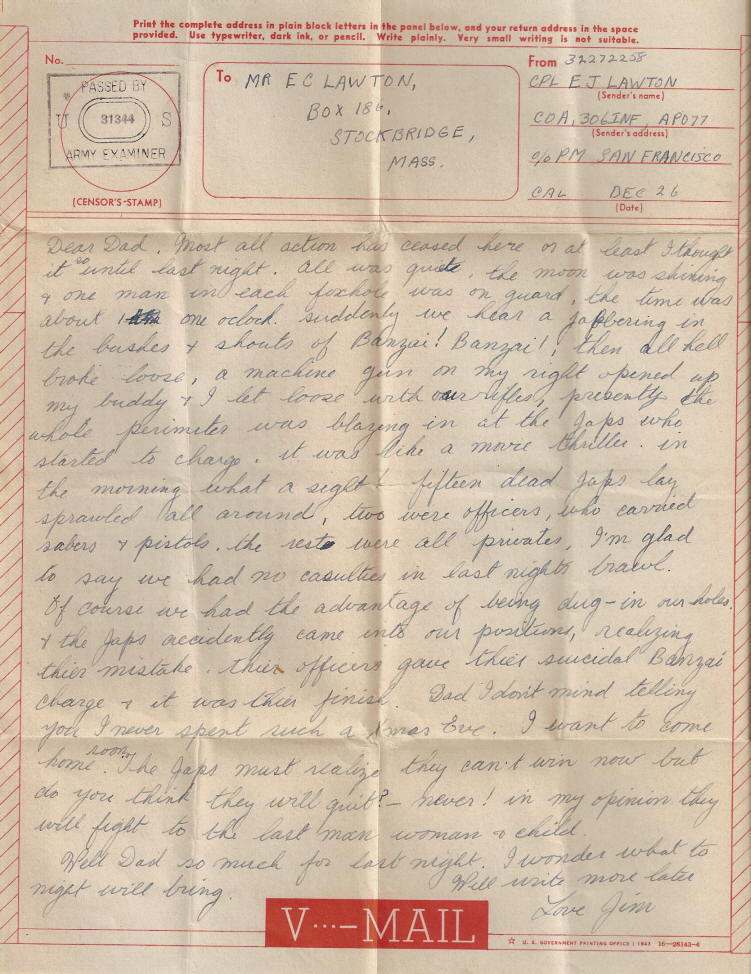 Print the complete address in plain block letters in the panel below, and your return address in the space
provided. Use typewriter, dark ink, or pencil. Write plainly. Very small writing is not suitable.
No.
PASSED BY
U 31344 S
ARMY EXAMINER
(CENSOR'S-STAMP)
To MR E C LAWTON,
BOX 186,
STOCKBRIDGE,
MASS.
From 32272258
CPL E J LAWTON
(Sender's name)
CO A, 306 INF, APO 77
(Sender's address)
c/o PM SAN FRANCISCO
CAL DEC 26
(Date)
Dear Dad. Most all action has ceased here or at least I thought
it so until last night. All was quite, the moon was shining
& one man in each foxhole was on guard, the time was
about one oclock. suddenly we hear a jabbering in
the bushes & shouts of Banzai! Banzai!, then all hell
broke loose, a machine gun on my right opened up
my buddy & I let loose with our rifles, presently the
whole perimeter was blazing in at the Japs who
started to charge. it was like a movie thriller. in
the morning what a sight! fifteen dead Japs lay
sprawled all around, two were officers, who carried
sabers & pistols. the rest were all privates, I'm glad
to say we had no casulties in last nights brawl.
Of course we had the advantage of being dug-in our holes.
& the Japs accidently came into our positions, realizing
thier mistake. thier officers gave thier suicidal Banzai
charge & it was thier finish. Dad I don't mind telling
you I never spent such a Xmas Eve. I want to come
home soon. The Japs must realize they can't win now but
do you think they will quit? - never! in my opinion they
will fight to the last man woman & child.
Well Dad so much for last night. I wonder what to
night will bring. Will write more later
Love Jim
V···-MAIL
☆ U. S. GOVERNMENT PRINTING OFFICE : 1943 16-28143-4